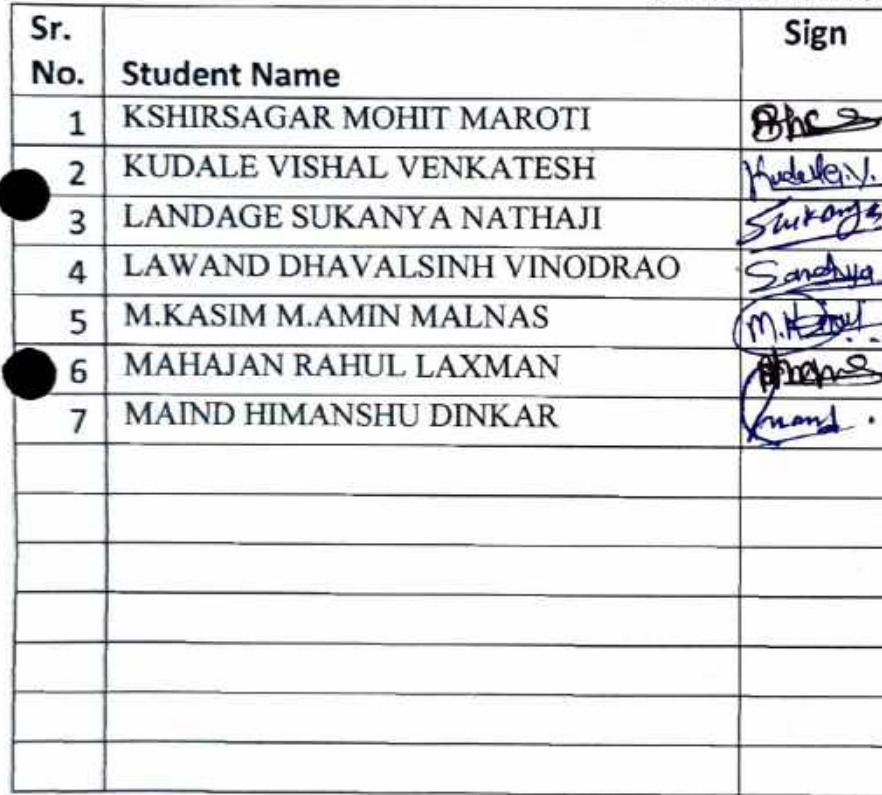 Sr. No. Student Name Sign
1 KSHIRSAGAR MOHIT MAROTI
2 KUDALE VISHAL VENKATESH Kudale.V.
3 LANDAGE SUKANYA NATHAJI Sukanya
4 LAWAND DHAVALSINH VINODRAO Sandhya
5 M.KASIM M.AMIN MALNAS
6 MAHAJAN RAHUL LAXMAN
7 MAIND HIMANSHU DINKAR